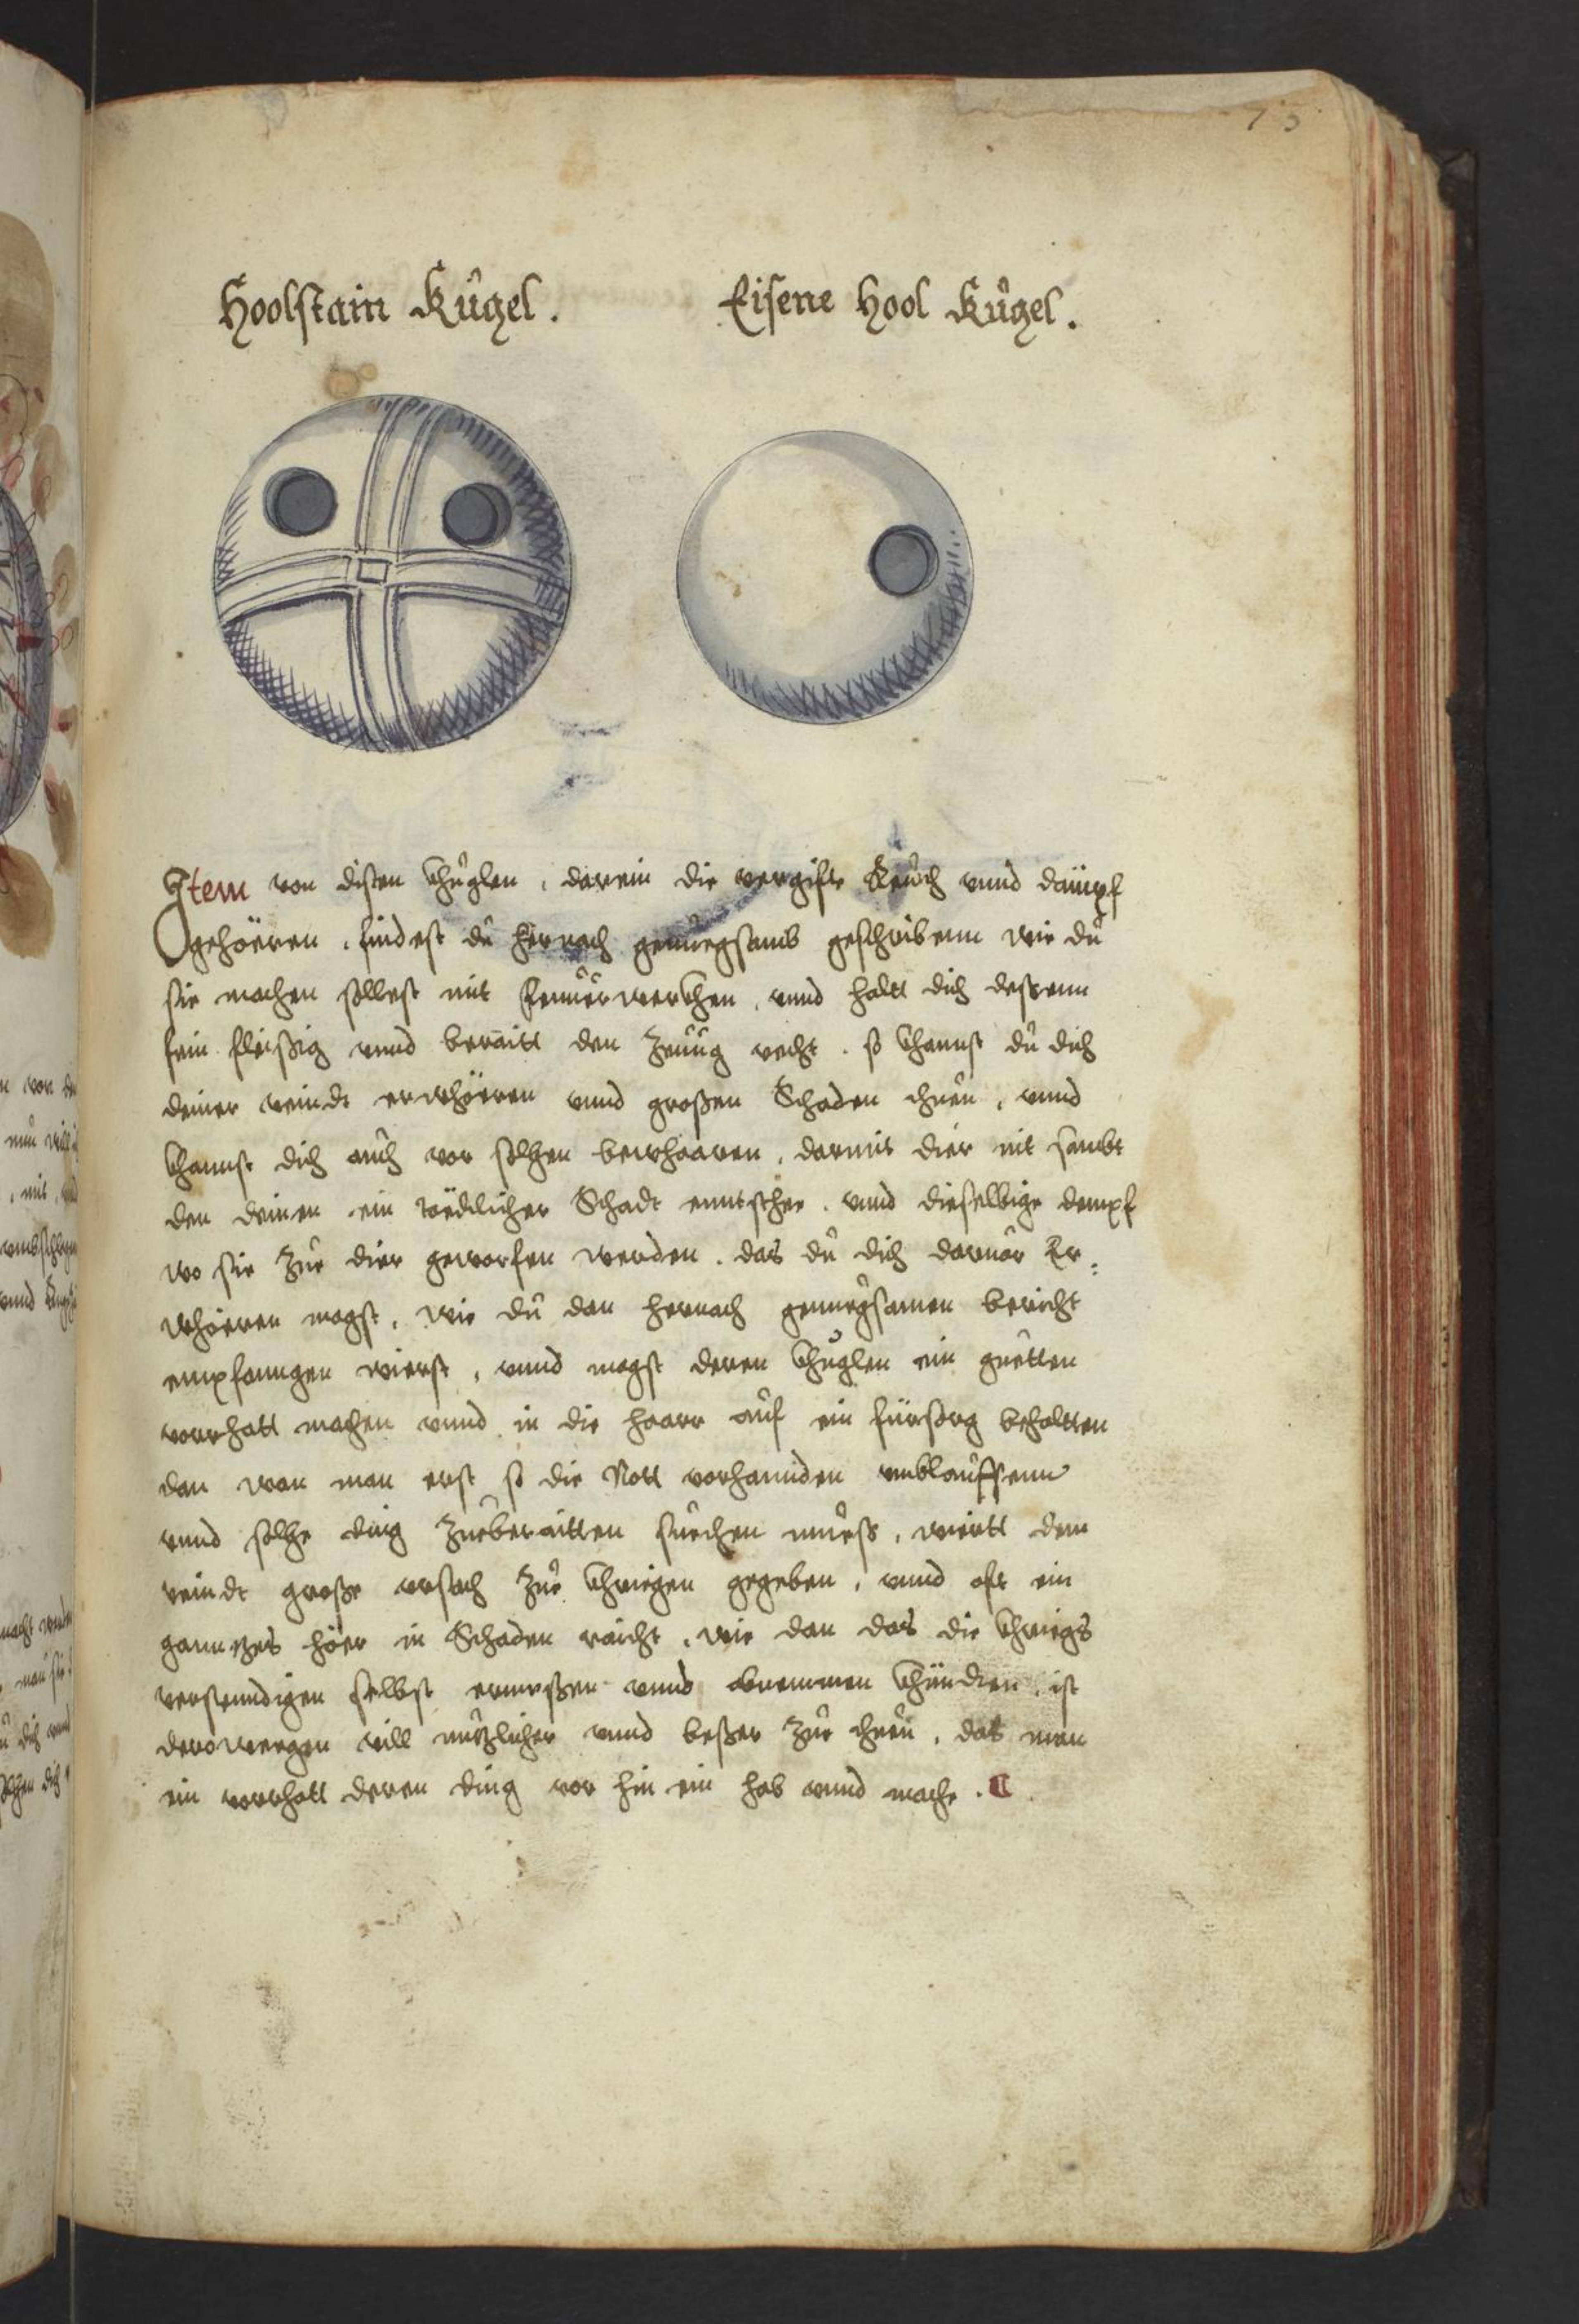 73
Hoolstain Kůgel. Eisene Hool Kůgel.
Item von disen khůglen, darein die vergifte Reůch vnnd dämpf
gehöeren, findest dů hernach genůegsamb geschribenn wie dů
sie machen sollest mit feůerwerkhen, vnnd haltt dich dessenn
fein fleissig vnnd beraitt den zeůg recht. so khannst dů dich
deiner veindt erwhöeren vnnd grossen Schaden thůen, vnnd
khannst dich aůch vor solhen bewhaaren, darmit dier nit sambt
den deinen ein töedlicher Schadt enntstehe. vnnd dieselbige dempf
wo sie zůe dier geworfen werden. das dů dich daruor Er,
whöeren magst, wie dů dan hernach genůegsamen bericht
empfanngen wierst, vnnd magst deren khůglen ein gůetten
vorrhatt machen vnnd in die haarr aůf ein fürsorg behaltten
dan wan man erst so die Nott vorhannden vmblaůffenn
vnnd solhe ding zůeberaitten sůechen můess, wiertt dem
veindt grosse vrsach zůe khriegen gegeben, vnnd oft ein
ganntzes höer in Schaden raicht, wie dan das die khriegs
verstenndigen selbst ermessen vnnd khündten, ist
derowegen vill nůtzlicher vnnd besser zůe thůen, das man
ein vorrhatt deren ding vor hin ein hab vnnd mache.